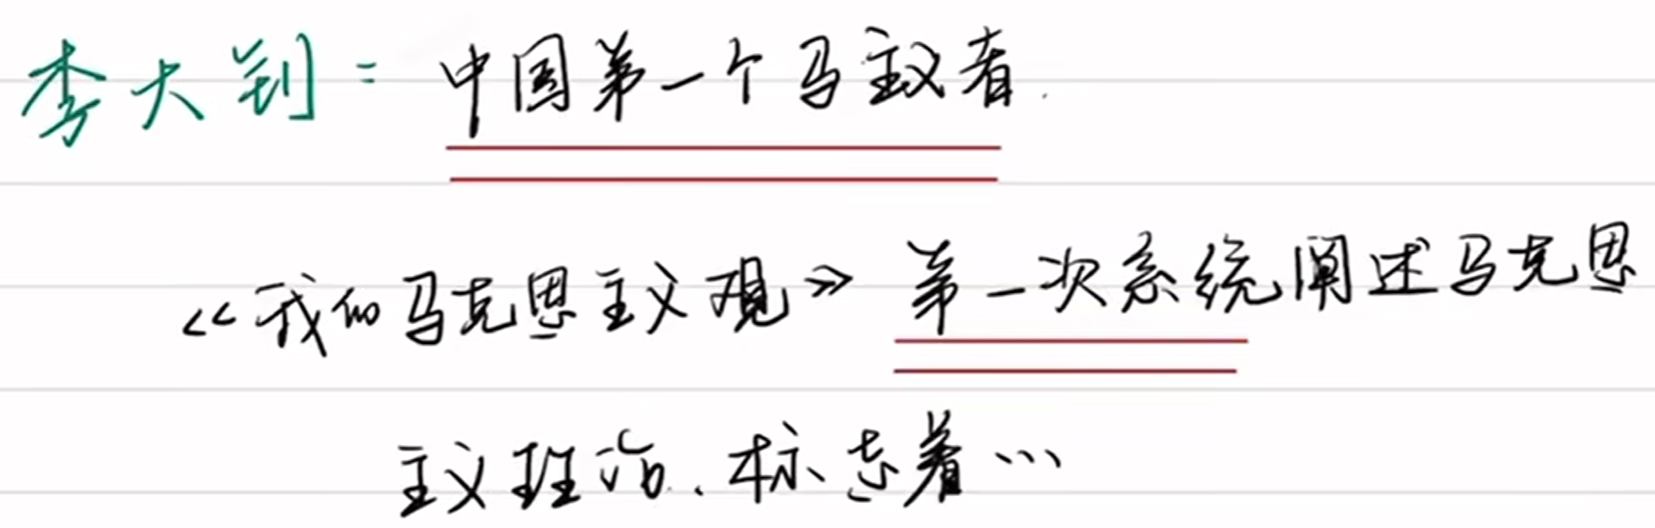 李大钊：中国第一个马主义者.
《我的马克思主义观》第一次系统阐述马克思
主义理论.标志着…